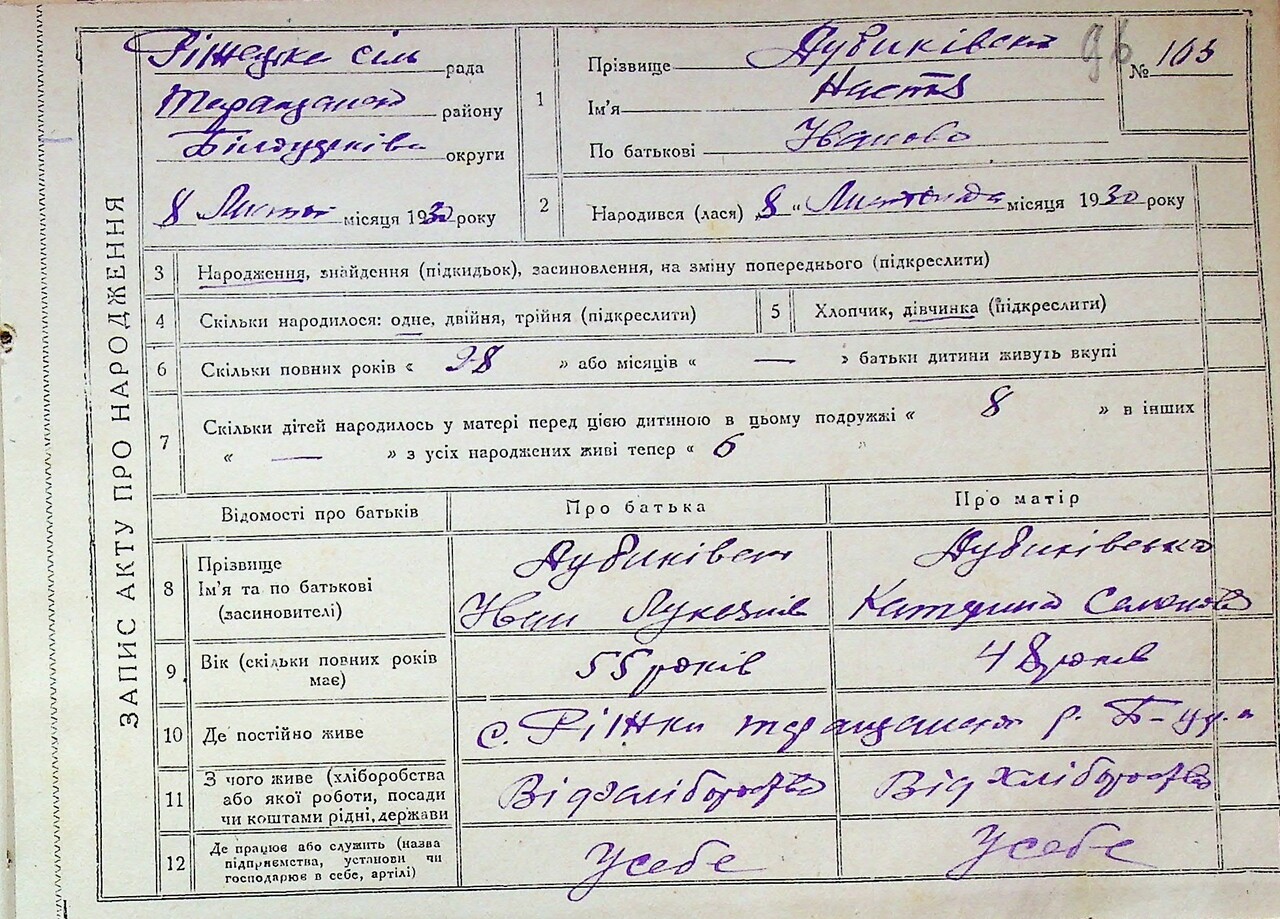 ЗАПИС АКТУ ПРО НАРОДЖЕННЯ
сіль рада
району
округи
8 місяця 1930 року
1
Прізвище
Ім'я Настя
По батькові Іванова
№ 103
2
Народився (лася) „8“ Листопада місяця 1930 року
3 Народження, знайдення (підкидьок), засиновлення, на зміну попереднього (підкреслити)
4 Скільки народилося: одне, двійня, трійня (підкреслити)
5 Хлопчик, дівчинка (підкреслити)
6 Скільки повних років « 28 » або місяців « — » батьки дитини живуть вкупі
7 Скільки дітей народилось у матері перед цією дитиною в цьому подружжі « 8 » в інших
« — » з усіх народжених живі тепер « 6 »
Відомості про батьків Про батька Про матір
8
Прізвище
Ім'я та по батькові
(засиновителі)
Іван
Дубиківська
Катерина
9 Вік (скільки повних років
має)
55 років
48 років
10 Де постійно живе
с. Ріжки р.
11
З чого живе (хліборобства
або якої роботи, посади
чи коштами рідні, держави
Від хліборобства
Від хліборобства
12
Де працює або служить (назва
підприємства, установи чи
господарює в себе, артілі)
У себе
У себе